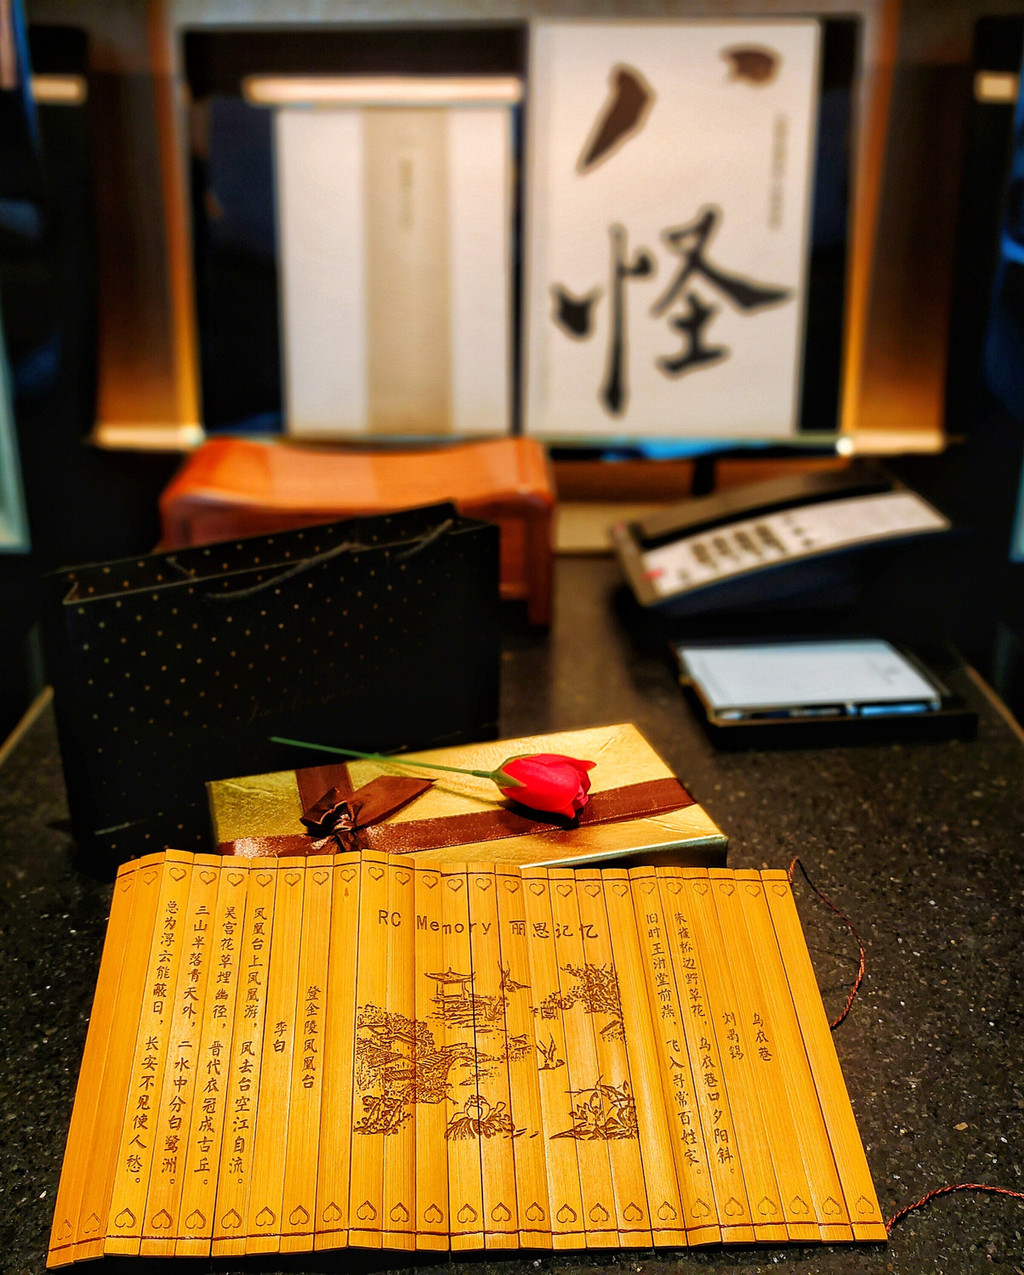 八怪
RC Memory 丽思记忆
乌衣巷
刘禹锡
朱雀桥边野草花，乌衣巷口夕阳斜。
旧时王谢堂前燕，飞入寻常百姓家。
登金陵凤凰台
李白
凤凰台上凤凰游，凤去台空江自流。
吴宫花草埋幽径，晋代衣冠成古丘。
三山半落青天外，二水中分白鹭洲。
总为浮云能蔽日，长安不见使人愁。